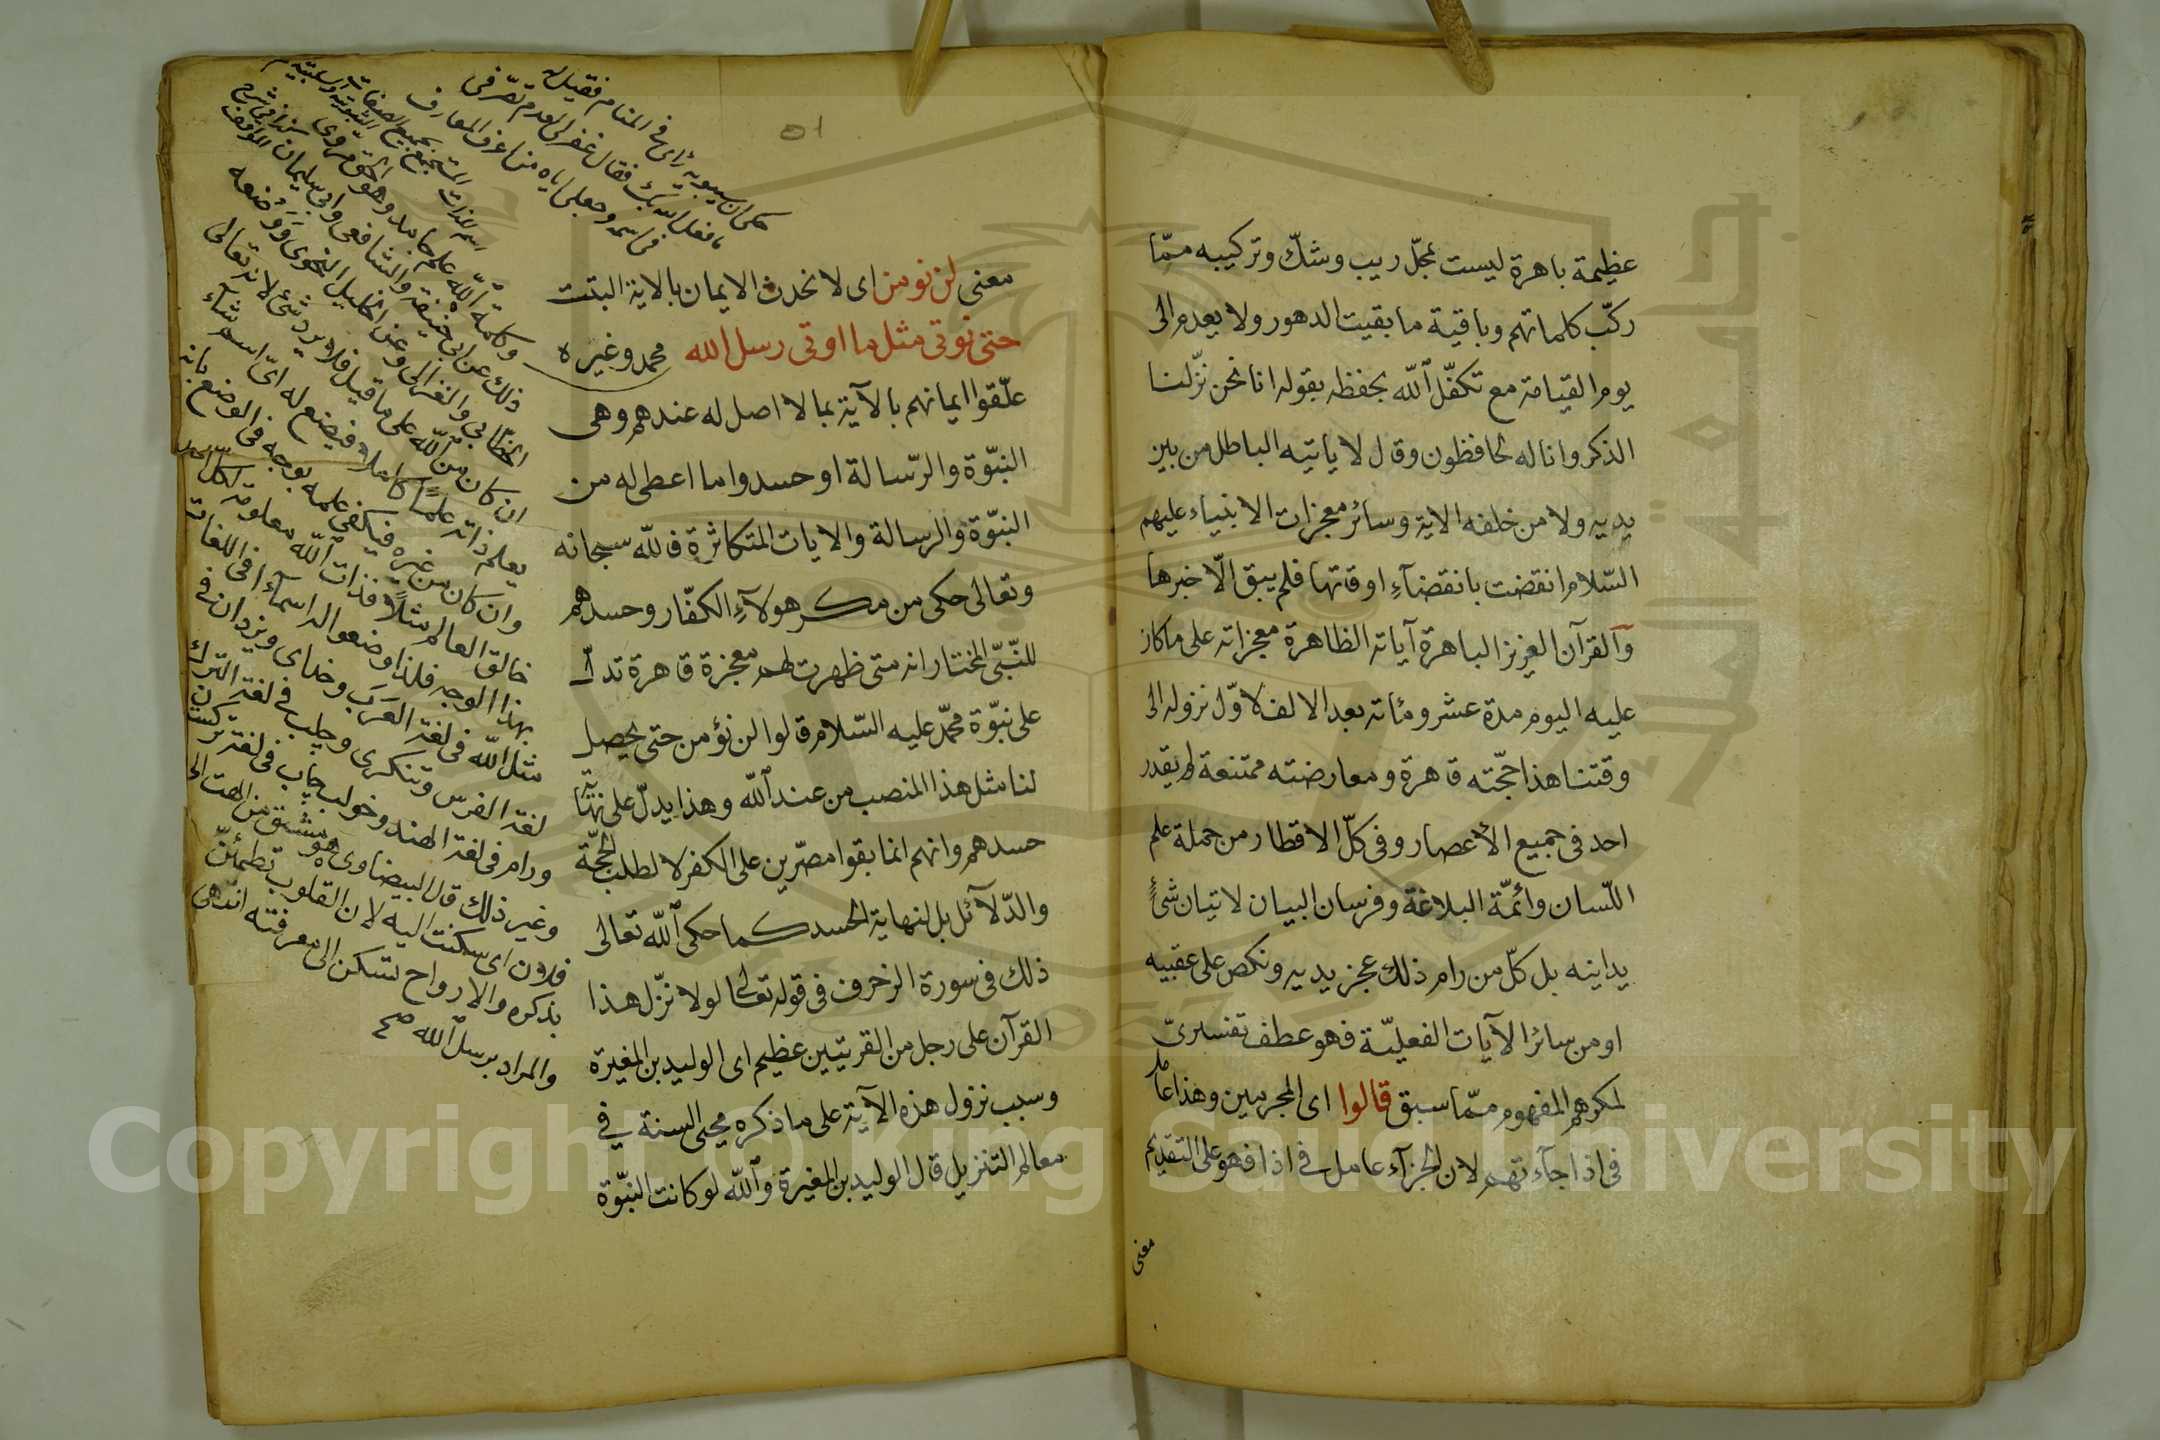 عظيمة باهرة ليست بمحلّ ريب وشكّ وتركيبه ممّا
ركّب كلماتهم وباقية ما بقيت الدهور ولا يعدم الى
يوم القيامة مع تكفّل الله بحفظه بقوله انا نحن نزّلنا
الذكر وانا له لحافظون وقال لا ياتيه الباطل من بين
يديه ولا من خلفه الاية وسائر معجزات الانبياء عليهم
السّلام انقضت بانقضآء اوقاتها فلم يبق الّا خبرها
والقرآن العزيز الباهرة آياته الظاهرة معجزاته على ما كان
عليه اليوم مدة عشر ومائة بعد الالف لاوّل نزوله الى
وقتنا هذا حجّته قاهرة ومعارضته ممتنعة لم يقدر
احد فى جميع الأعصار وفى كلّ الاقطار من جملة علم
اللّسان وائمّة البلاغة وفرسان البيان لاتيان شئ
يدانيه بل كلّ من رام ذلك عجز يديه ونكص على عقبيه
او من سائر الآيات الفعليّة فهو عطف تفسيرىّ
لمكرهم المفهوم ممّا سبق قالوا اى المجرمين وهذا عامل
فى اذا جآءتهم لان الجزآء عامل فى اذا فهو على التقديم
معنى
٥١
معنى لن نومن اى لا نحدث الايمان بالاية البتت
حتى نوتى مثل ما اوتى رسل الله محمد وغيره
علّقوا ايمانهم بالآية بما لا اصل له عندهم وهى
النبّوة والرّسالة او حسدوا ما اعطى له من
النبّوة والرسالة والايات المتكاثرة فالله سبحانه
وتعالى حكى من مكر هولآء الكفّار وحسدهم
للنّبّى المختار انه متى ظهرت لهم معجزة قاهرة تدل
على نبّوة محمّد عليه السّلام قالوا لن نؤمن حتى يحصل
لنا مثل هذا المنصب من عند الله وهذا يدلّ على نهاية
حسدهم وانهم انما بقوا مصّرين على الكفر لا لطلب الحجّة
والدّلآئل بل لنهاية الحسد كما حكى الله تعالى
ذلك فى سورة الزخرف فى قوله تعالى لولا نزّل هذا
القرآن على رجل من القريتين عظيم اى الوليد بن المغيرة
وسبب نزول هذه الآية على ما ذكره محيى السنة في
معالم التنزيل قال الوليد بن المغيرة والله لو كانت النبّوة
حكى ان سيبويه رُاى فى المنام فقيل له
ما فعل الله بك فقال غفر لى لعدم تصّرفى
فى اسمه وجعلى اياه من اعرف المعارف
اسم للذات المستجمع بجميع الصفات الثبوتية والسلبية
وكلمة الله علم جامد وهو الحق مروى
ذلك عن ابى حنيفة والشافعى وابى سليمان
الخطابى والغزالى وعن الخليل النحوى ووضعه
ان كان من الله على ما قيل فلا يرد شئ لانه تعالى
يعلم ذاته علمًا كاملا فيضع له اىّ اسم شاء
وان كان من غيره فيكفى علمه بوجه فى الوضع بانه
خالق العالم مثلًا فذات الله معلومة لكل احد
بهذا الوجه فلذا وضعوا له اسمآء فى اللغات
مثل الله فى لغة العَرَب وخداى ويزدان فى
لغة الفرس وتنكرى وچلب فى لغة الترك
ورام فى لغة الهند
وغير ذلك قال البيضاوى
فلان اى سكنت اليه لان القلوب تطمئنّ
بذكره والارواح تسكن الى معرفته انتهى
والمراد برسل الله صح